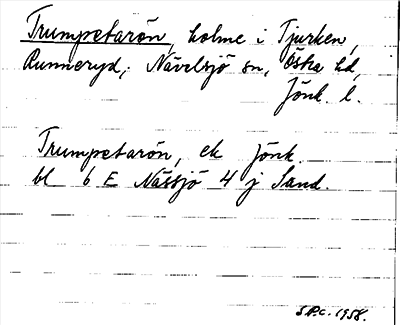 Trumpetarön, holme i Tjurken,
Runneryd, Nävelsjö sn, Östra hd,
Jönk. l.
Trumpetarön, ek Jönk.
bl 6 E Nässjö 4 j Sand.
S.P.c. 1958.